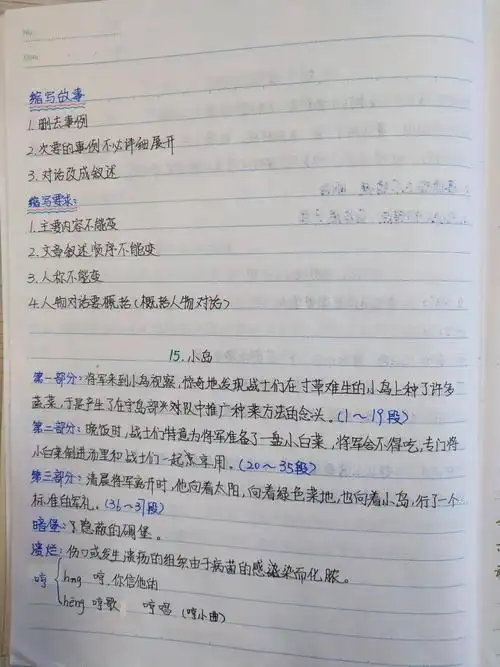 缩写故事
1.删去事例
2.次要的事例不必详细展开
3.对话改成叙述
缩写要求:
1.主要内容不能变
2.文章叙述顺序不能变
3.人称不能变
4.人物对话要概括(概括人物对话)
15.小岛
第一部分:将军来到小岛视察,惊奇地发现战士们在寸草难生的小岛上种了许多
蔬菜,于是产生了在守岛部队中推广种菜方法的念头。(1~19段)
第二部分:晚饭时,战士们特意为将军准备了一盘小白菜,将军舍不得吃,专门将
小白菜倒进汤里和战士们一起享用。(20~35段)
第三部分:清晨将军离开时,他向着太阳,向着绿色菜地,也向着小岛,行了一个
标准的军礼。(36~37段)
暗堡:隐蔽的碉堡。
溃烂:伤口或发生溃疡的组织由于病菌的感染而化脓。
哼 hng 哼,你信他的
hēng 哼歌 哼唱 (哼小曲)